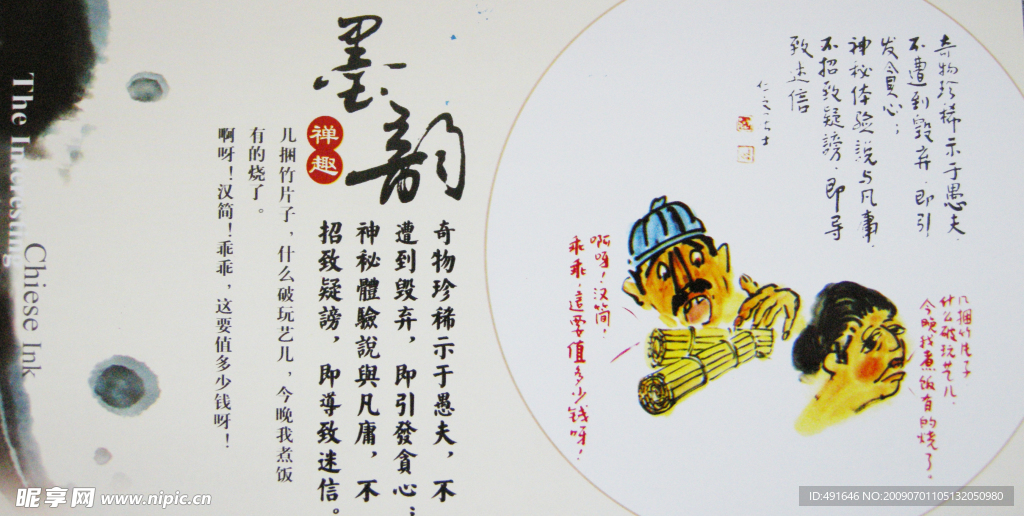 墨韵
禅趣
奇物珍稀示于愚夫，不
遭到毁弃，即引發貪心；
神秘體驗說與凡庸，不
招致疑謗，即導致迷信。
几捆竹片子，什么破玩艺儿，今晚我煮饭
有的烧了。
啊呀！汉简！乖乖，这要值多少钱呀！
The Interesting
Chiese Ink
奇物珍稀示于愚夫，
不遭到毁弃，即引
发貪心；
神秘体验说与凡庸，
不招致疑謗，即导
致迷信
几捆竹片子
什么破玩艺儿，
今晚我煮饭有的烧了。
啊呀！汉简！
乖乖，這要值多少钱呀！
昵享网 www.nipic.cn
ID:491646 NO:20090701105132050980